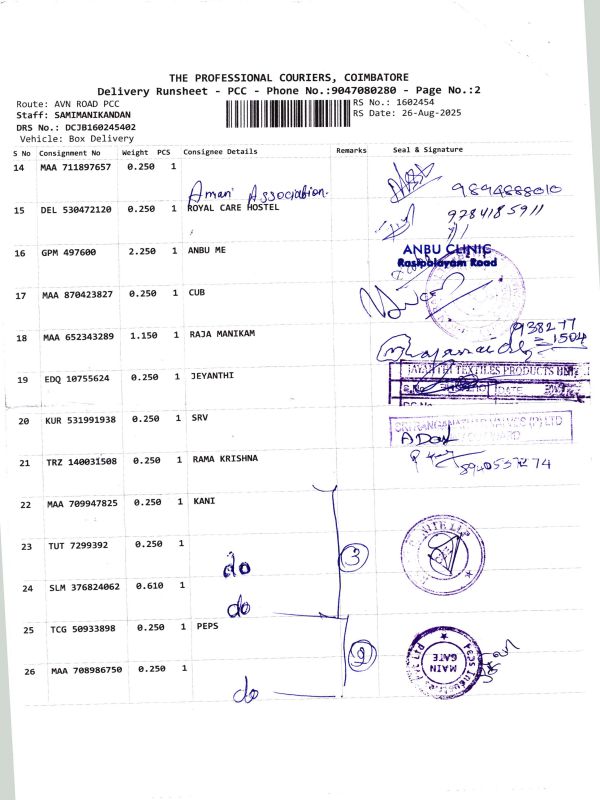 THE PROFESSIONAL COURIERS, COIMBATORE
Delivery Runsheet - PCC - Phone No.:9047080280 - Page No.:2
Route: AVN ROAD PCC
RS No.: 1602454
Staff: SAMIMANIKANDAN
RS Date: 26-Aug-2025
DRS No.: DCJB160245402
Vehicle: Box Delivery
S No Consignment No Weight PCS Consignee Details Remarks Seal & Signature
14 MAA 711897657 0.250 1
Aman Association 9894888010
15 DEL 530472120 0.250 1 ROYAL CARE HOSTEL 9784185911
16 GPM 497600 2.250 1 ANBU ME
ANBU CLINIC
Rasipalayam Road
17 MAA 870423827 0.250 1 CUB
18 MAA 652343289 1.150 1 RAJA MANIKAM
938277
1504
19 EDQ 10755624 0.250 1 JEYANTHI
JAYANTHI TEXTILES PRODUCTS
DATE
20 KUR 531991938 0.250 1 SRV
21 TRZ 140031508 0.250 1 RAMA KRISHNA
22 MAA 709947825 0.250 1 KANI
23 TUT 7299392 0.250 1
do
3
24 SLM 376824062 0.610 1
do
25 TCG 50933898 0.250 1 PEPS
2
Peps Industries Pvt Ltd
MAIN
GATE
26 MAA 708986750 0.250 1
do